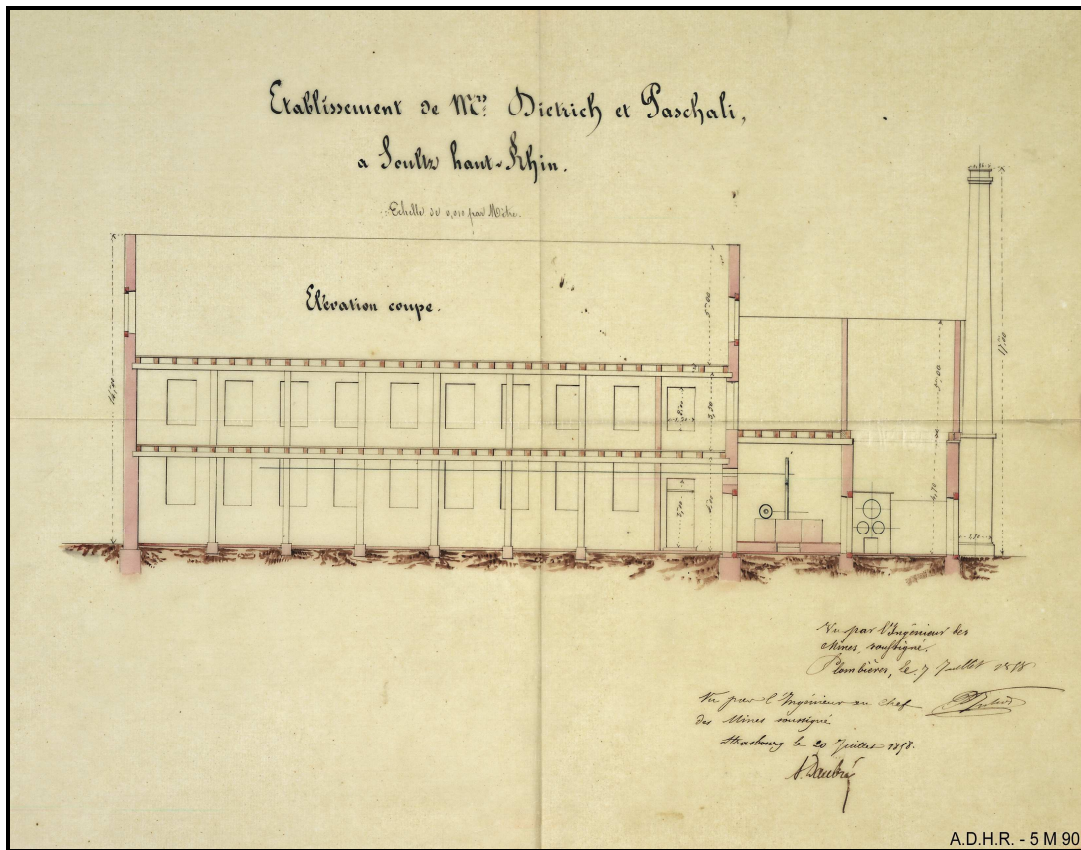 Etablissement de M.rs Dietrich et Paschali,
a Soultz haut-Rhin.
Echelle de 0,010 par Mètre.
Elévation coupe.
5,00
17,00
5,00
3,50
4,70
Vu par l'Ingénieur des
Mines, soussigné.
Plombières, le 7 Juillet 1858
Vu par l'Ingénieur en chef
des Mines soussigné
Strasbourg le 20 Juillet 1858.
A. Daubrée
A.D.H.R. - 5 M 90